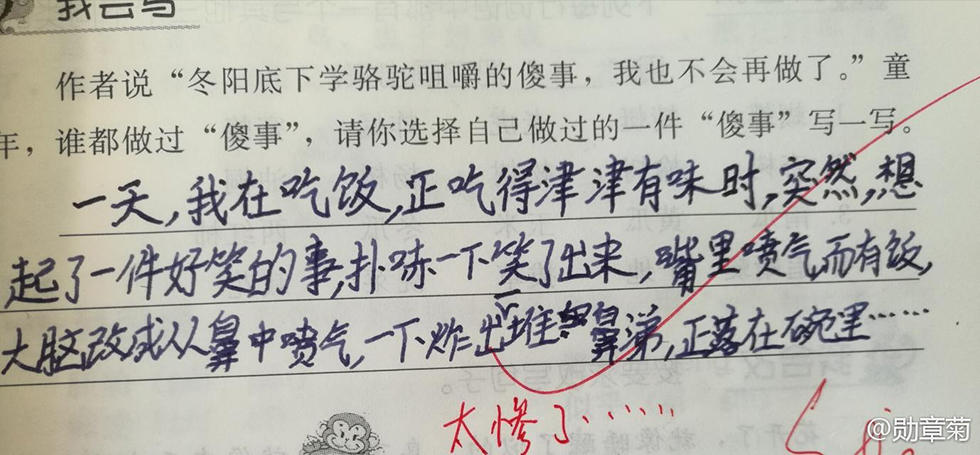 我会写
作者说“冬阳底下学骆驼咀嚼的傻事，我也不会再做了。”童
年，谁都做过“傻事”，请你选择自己做过的一件“傻事”写一写。
一天，我在吃饭，正吃得津津有味时，突然，想
起了一件好笑的事，扑哧一下笑了出来，嘴里喷气而有饭，
大脑改成从鼻中喷气，一下炸出一堆鼻涕，正落在碗里……
太惨了……
@勋章菊